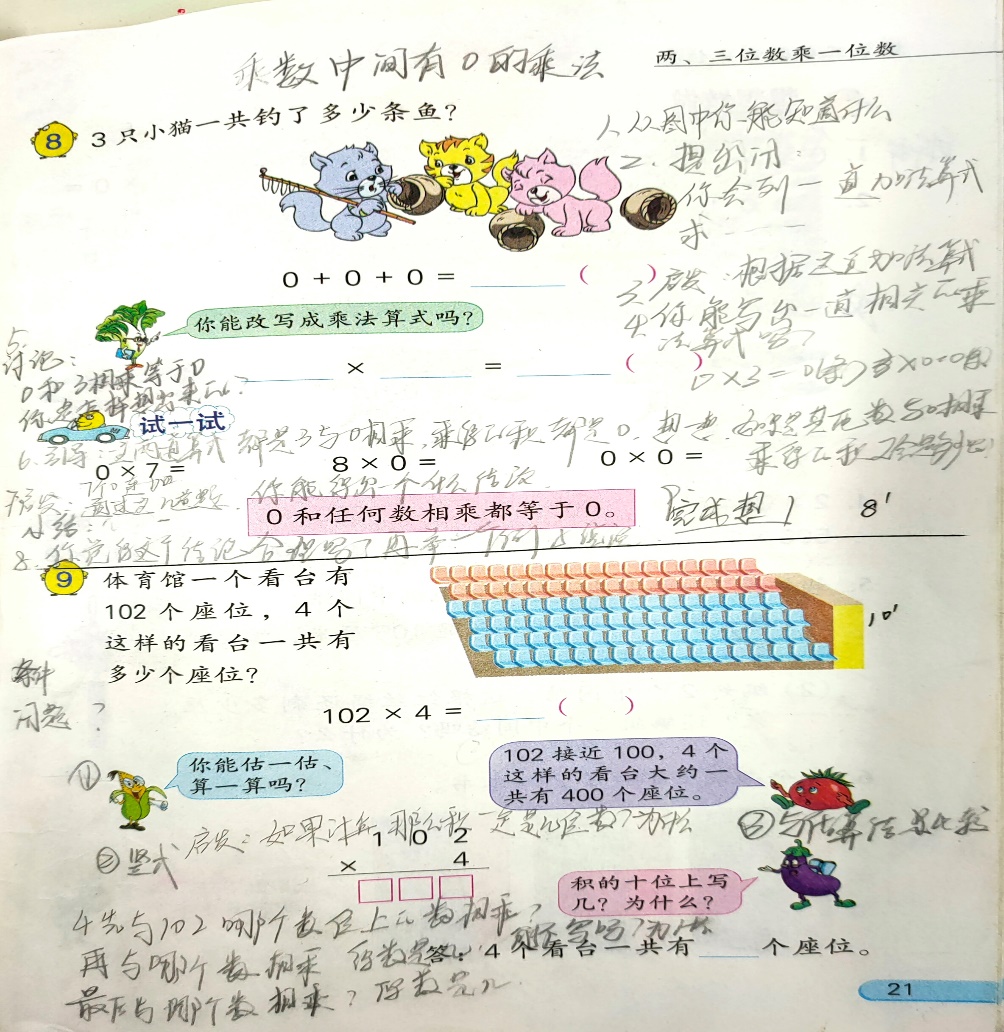 乘数中间有0的乘法
两、三位数乘一位数
8 3只小猫一共钓了多少条鱼？
1、从图中你能知道什么
2.提公问：
你会列一道加法算式
求
0 + 0 + 0 = （ ）
3.启发：根据这道加法算式
4.你能写出一道相关的乘
法算式吗？
你能改写成乘法算式吗？
× = （ ）
5.
讨论：
0和3相乘等于0
你是怎样想出来的？
试一试
6.引导：这两道算式都是3与0相乘，乘得的积都是0，想想，如果其它数与0相乘
乘得的积
0 × 7 =
8 × 0 =
0 × 0 =
7.启发：通过这几道题，你能得出一个什么结论
小结：
0和任何数相乘都等于0。
完成想1
8′
8.你说的这个结论
9 体育馆一个看台有
102个座位，4个
这样的看台一共有
多少个座位？
10′
条件
问题？
102 × 4 = （ ）
①
你能估一估、
算一算吗？
102接近100，4个
这样的看台大约一
共有400个座位。
启发：如果计算，那么积一定是几位数？为什么
③与估算结果比较
②竖式
1 0 2
× 4
积的十位上写
几？为什么？
4先与102哪个数位上的数相乘？
再与哪个数相乘 得数是几
答：4个看台一共有 个座位。
最后与哪个数相乘？得数是几
21